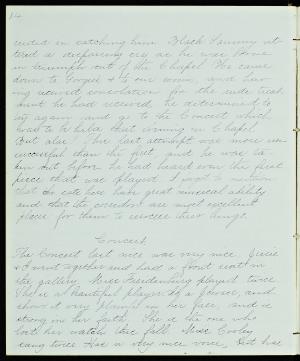 14
ceeded in catching him. Black Tommy ut
tered a despairing cry as he was borne
in triumph out of the Chapel. We came
down to Gorgie & to our room, and hav
ing received consolation for the rude treat
ment he had received he determined to
try again and go to the Concert which
was to be held that evening in Chapel
But alas! this last attempt was more un
successful than the first, and he was ta
ken out before he had heard even the first
piece that was played. I must mention
that cats here have great musical ability
and that the corridors are most excellent
places for them to exercise their lungs.
Concert
The Concert last nice was very nice.
& I went together and had a front seat in
the gallery. Miss Freidenburg played twice
She is a beautiful player & a Jewess, and
shows it very plainly in her face, and is
strong in her faith. She is the one who
lost her watch this fall. Miss Cooley
sang twice Has a very nice voice, but has